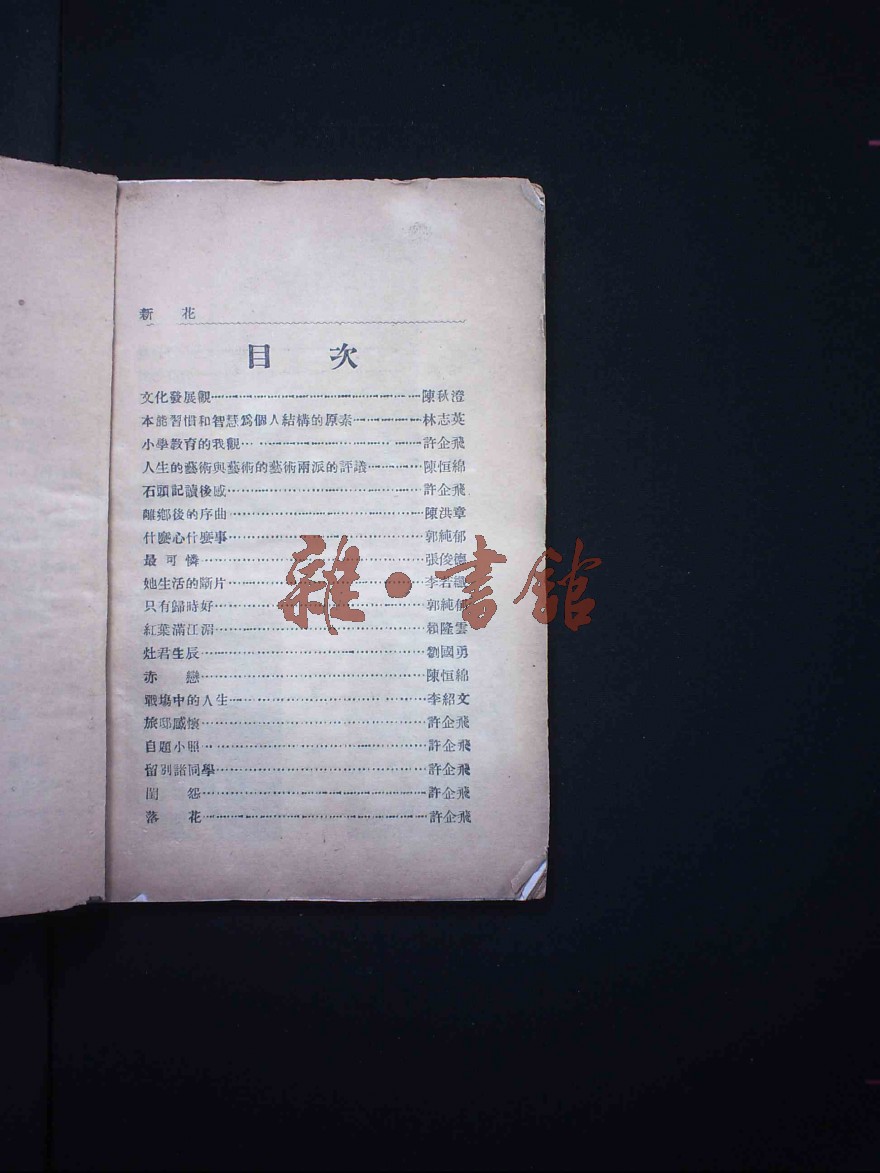 新花
目次
文化發展觀 陳秋澄
本能習慣和智慧爲個人結構的原素 林志英
小學教育的我觀 許企飛
人生的藝術與藝術的藝術兩派的評議 陳恒綿
石頭記讀後感 許企飛
離鄉後的序曲 陳洪章
什麼心什麼事 郭純郁
最可憐 張俊德
她生活的斷片 李若
只有歸時好 郭純郁
紅葉滿江湄 賴隆雲
灶君生辰 劉國勇
赤戀 陳恒綿
戰塲中的人生 李紹文
旅邸感懷 許企飛
自題小照 許企飛
留別諸同學 許企飛
閨怨 許企飛
落花 許企飛
雜·書館